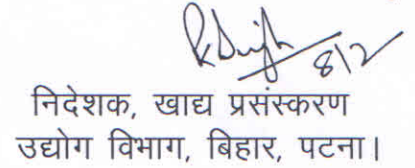 8/2
निदेशक, खाद्य प्रसंस्करण
उद्योग विभाग, बिहार, पटना।